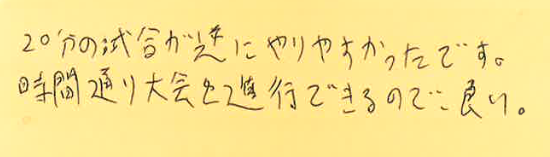 20分の試合が逆にやりやすかったです。
時間通り大会を進行できるのでで良い。